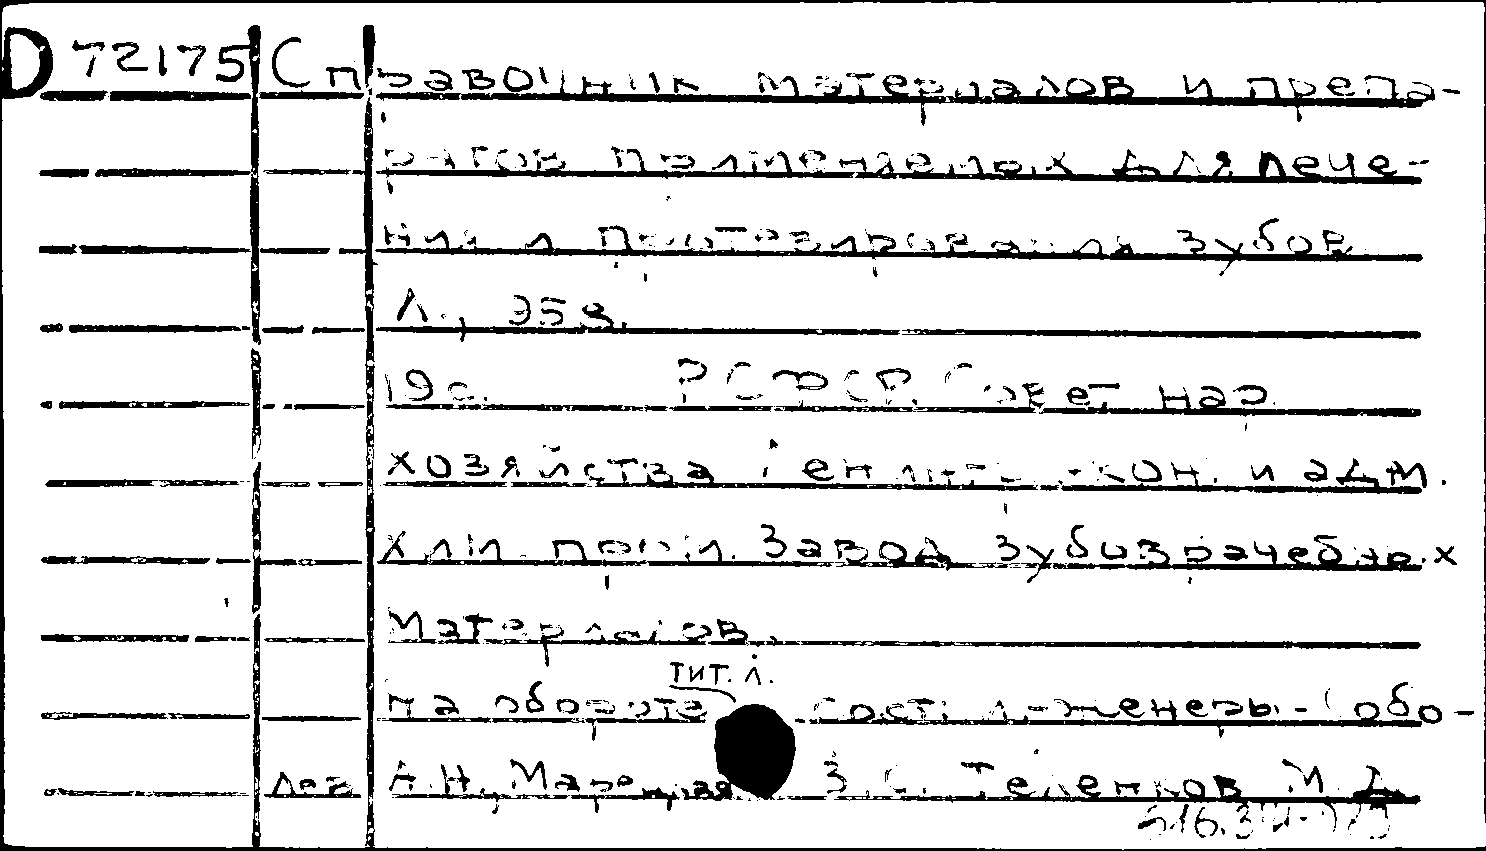 D 72175 Справочник материалов и препа-
ратов применяемых для лече-
ния и протезирования зубов
Л.,
19с. РСФСР. Совет нар.
хозяйства Ленингр. экон. и адм.
Завод зубоврачебных
материалов.
тит. л.
На обороте сост: инженеры-
А.Н., Марецкая З.С. Теленков М.Д.